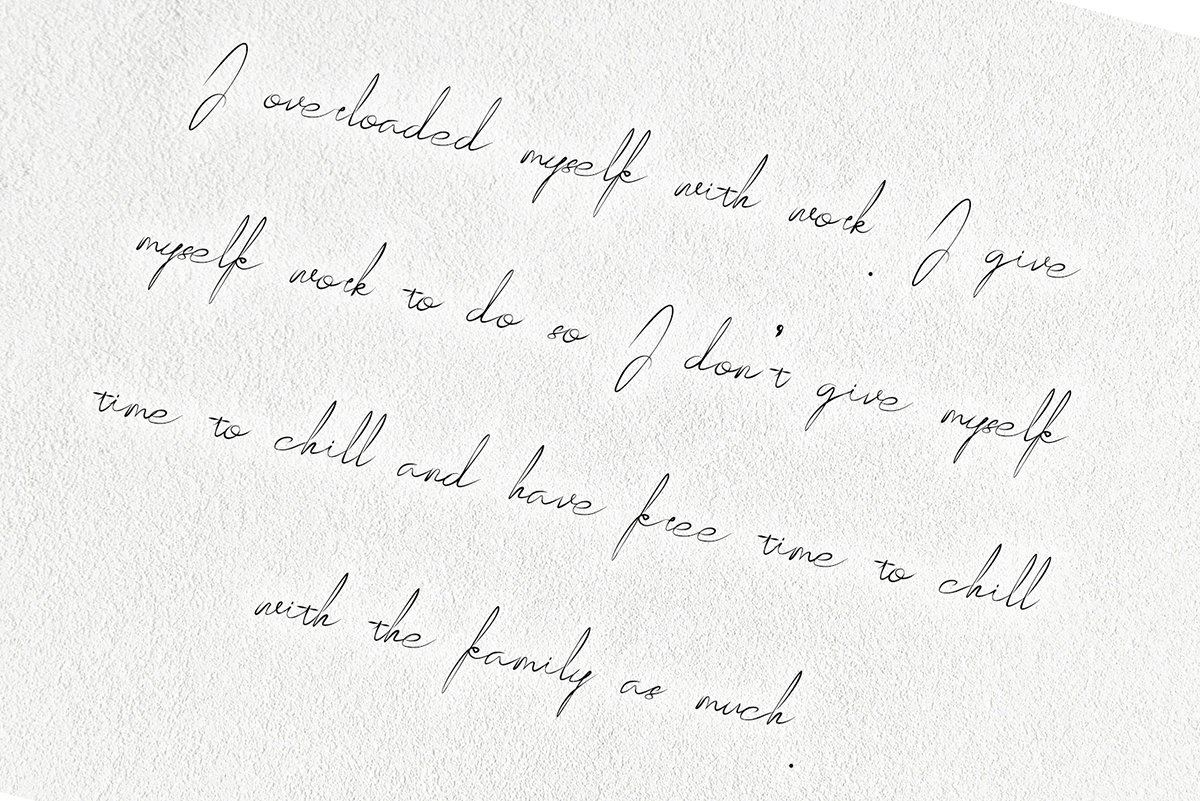 I overloaded myself with work. I give
myself work to do so I don't give myself
time to chill and have free time to chill
with the family as much.